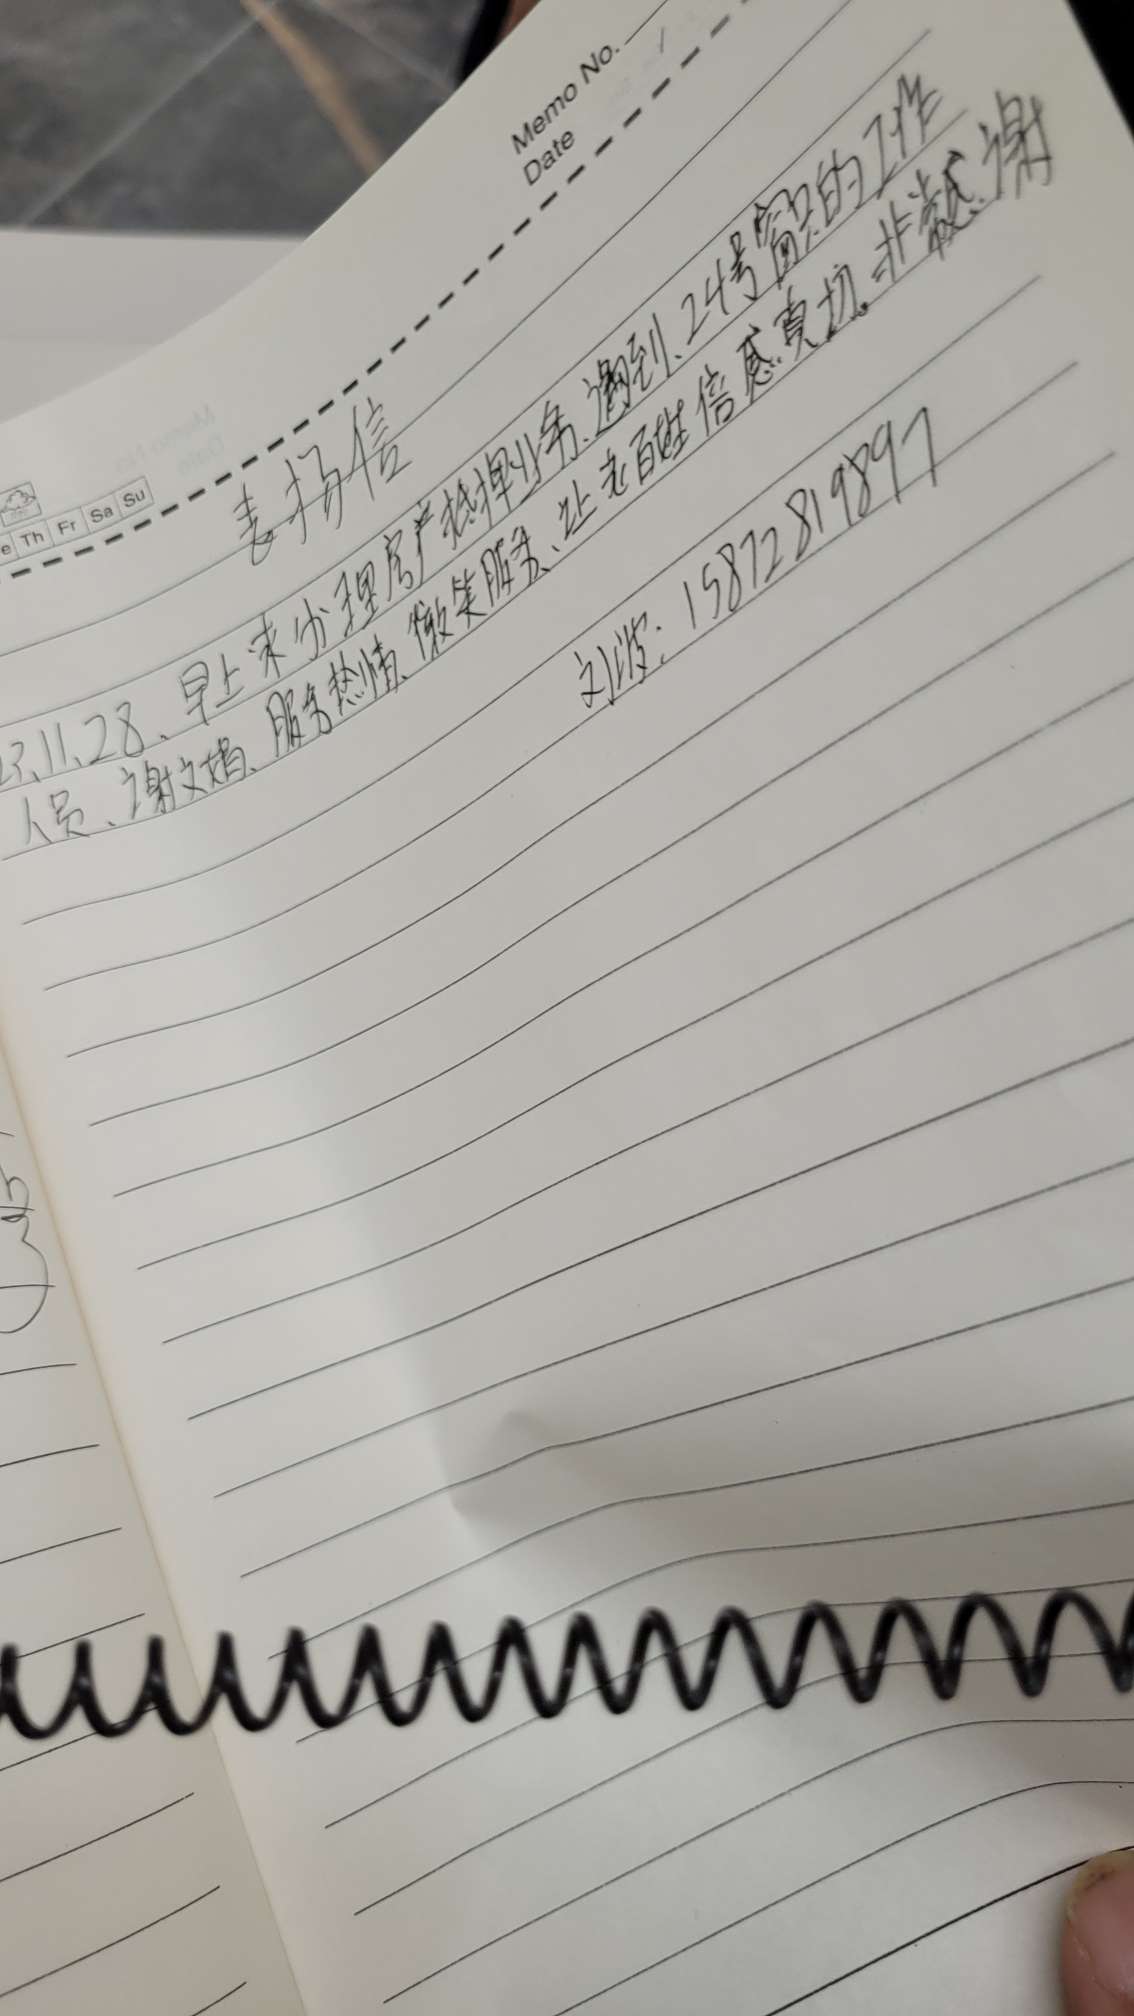 Memo No.
Date
e Th Fr Sa Su
表扬信
23.11.28、早上来办理房产抵押业务、遇到、24号窗口的工作
人员、谢文娟、服务热情、微笑服务、让老百姓倍感真切。非常感谢
刘波：15872819897